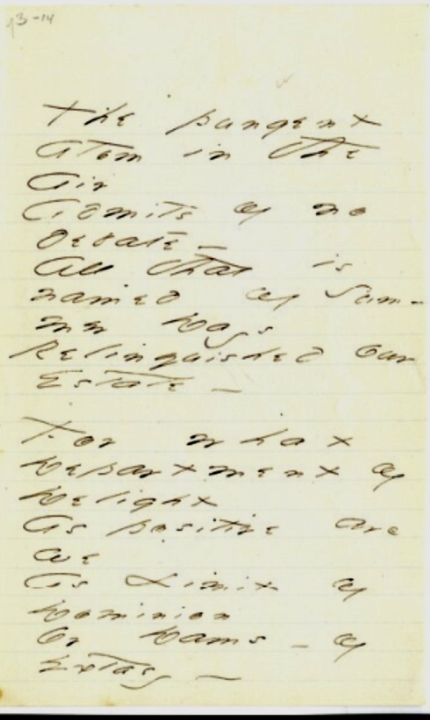 13-14
The pungent
atom in the
Air
Admits of no
debate -
All that is
named of Sum-
mer Days
Relinquished our
Estate -
For what
Department of
Delight
As positive are
we
As Limit of
Dominion
Or Dams - of
Extasy -